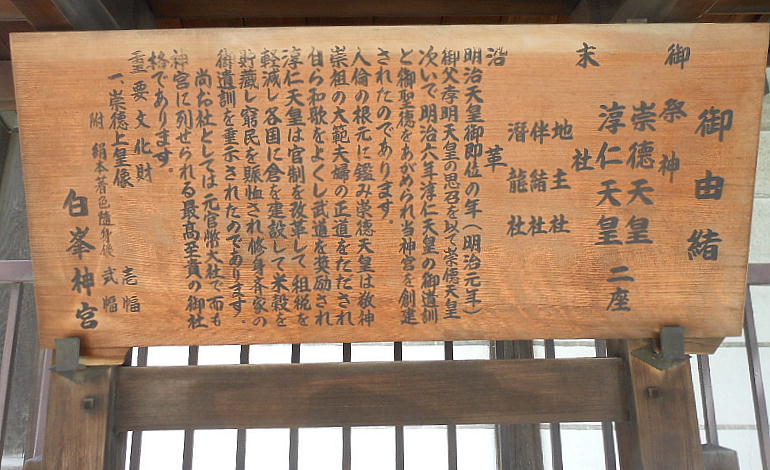 御由緒
御祭神
崇德天皇
淳仁天皇 二座
末社
地主社
伴緒社
潜龍社
沿革
明治天皇御即位の年(明治元年)
御父孝明天皇の思召を以て崇德天皇
次いで明治六年淳仁天皇の御遺訓
と御聖德をあがめられ当神宮を創建
されたのであります。
人倫の根元に鑑み崇德天皇は敬神
崇祖の大範夫婦の正道をたたされ
自ら和歌をよくし武道を奨励され
淳仁天皇は官制を改革して租税を
軽減し各国に倉を建設して米穀を
貯蔵し窮民を賑恤され修身斉家の
御遺訓を垂示されたのであります。
尚お社としては元官幣大社で而も
神宮に列せられる最高至貴の御社
格であります。
重要文化財
一、崇德上皇像 壱幅
附 絹本着色随身像 弐幅
白峯神宮